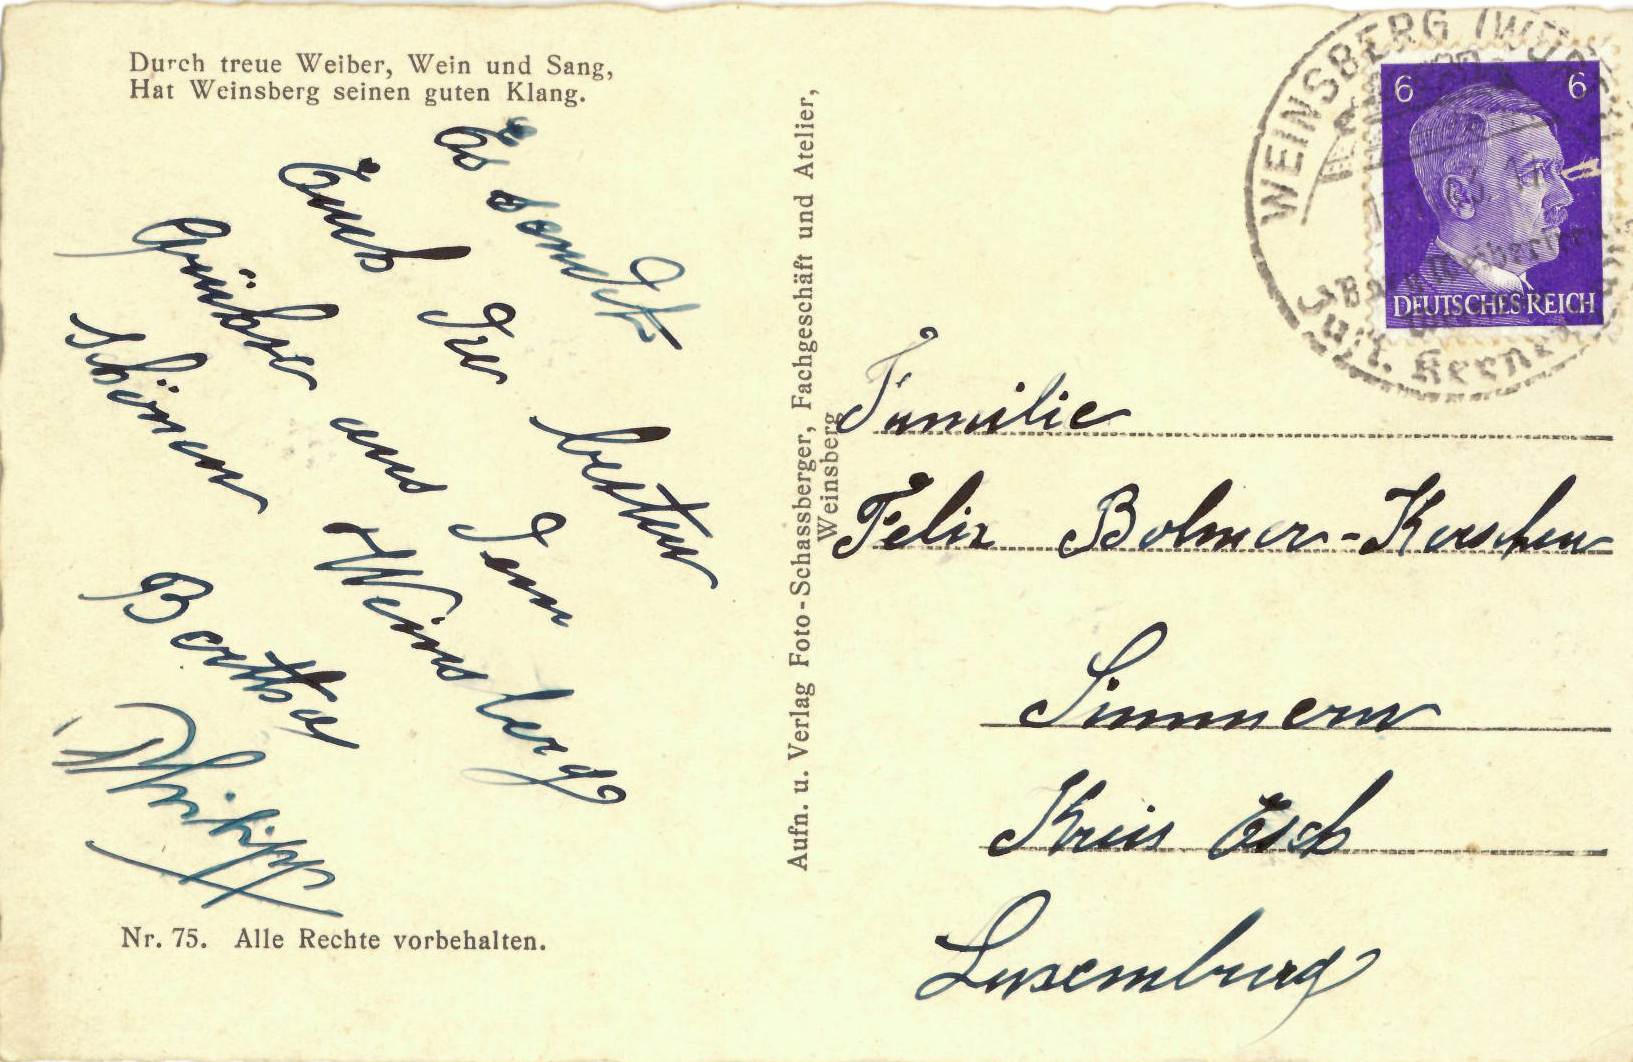 Durch treue Weiber, Wein und Sang,
Hat Weinsberg seinen guten Klang.
Es sendet
Euch die besten
Grüße aus dem
schönen Weinsberg
Bertha
Philipp
Nr. 75. Alle Rechte vorbehalten.
Aufn. u. Verlag Foto-Schassberger, Fachgeschäft und Atelier,
Weinsberg
WEINSBERG (WÜRTT
Just. Kerner
6 6
DEUTSCHES REICH
Familie
Felix Bolmer-Kerschen
Simmern
Kreis Esch
Luxemburg